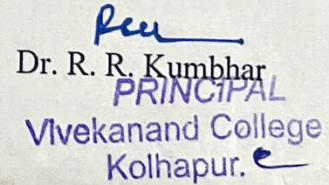 Dr. R. R. Kumbhar
PRINCIPAL
Vivekanand College
Kolhapur.